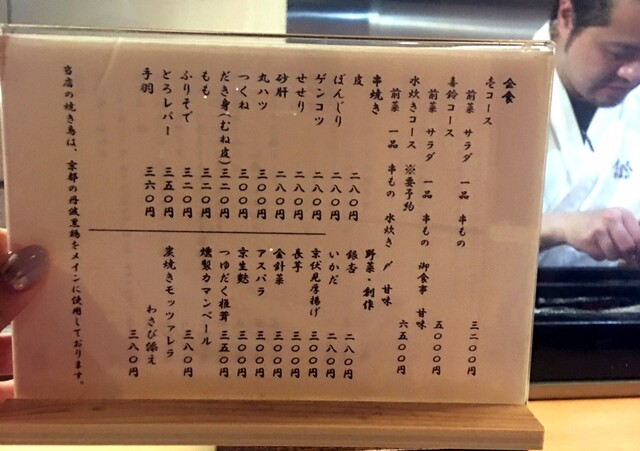 会食
壱コース
前菜 サラダ 一品 串もの 三二〇〇円
喜鈴コース
前菜 サラダ 一品 串もの 御食事 甘味 五〇〇〇円
水炊きコース ※要予約
前菜 一品 串もの 水炊き 〆 甘味 六五〇〇円
串焼き
皮 二八〇円
ぼんじり 二八〇円
ゲンコツ 二八〇円
せせり 二八〇円
砂肝 二八〇円
丸ハツ 三〇〇円
つくね 三〇〇円
だき身(むね皮) 三二〇円
もも 三二〇円
ふりそで 三二〇円
とろレバー 三五〇円
手羽 三六〇円
野菜・創作
銀杏 二八〇円
いかだ 二八〇円
京伏見厚揚げ 三〇〇円
長芋 三〇〇円
金針菜 三〇〇円
アスパラ 三〇〇円
京生麩 三〇〇円
つゆだく椎茸 三五〇円
燻製カマンベール 三八〇円
炭焼きモッツァレラ
わさび添え 三八〇円
当店の焼き鳥は、京都の丹波黒鶏をメインに使用しております。